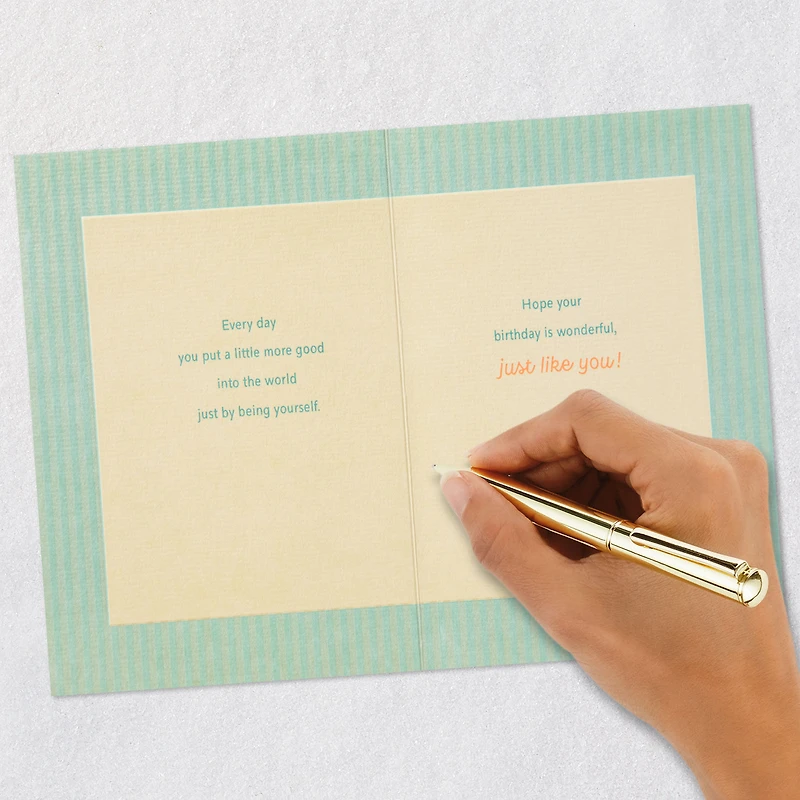 Every day
you put a little more good
into the world
just by being yourself.
Hope your
birthday is wonderful,
just like you!